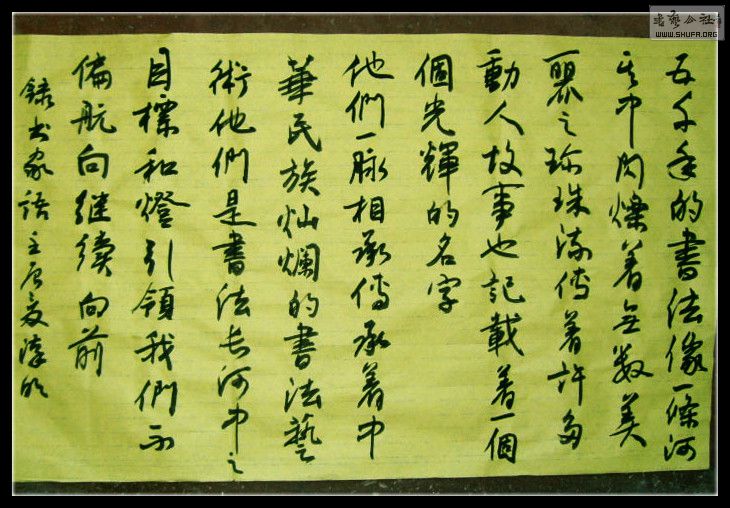 五千年的書法像一條河
其中閃爍著無数美
麗之珍珠流傳著許多
動人故事也記載著一個
個光輝的名字
他們一脉相承傳承著中
華民族灿爛的書法藝
術他們是書法長河中之
目標和燈引領我們不
偏航向继續向前
錄书家語
书艺公社
WWW.SHUFA.ORG